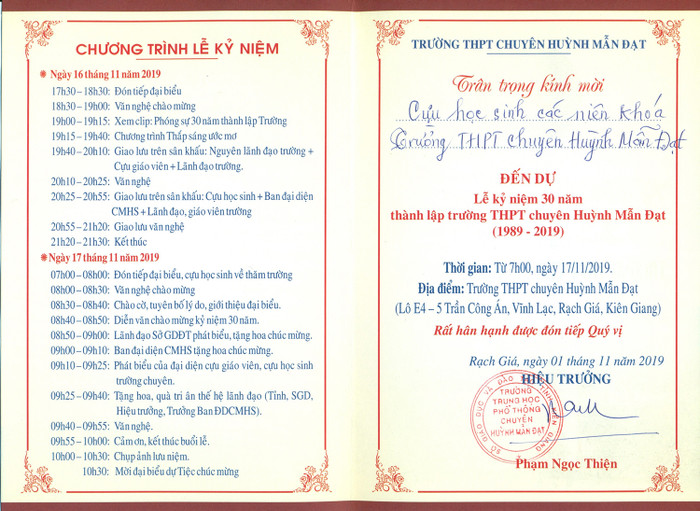 CHƯƠNG TRÌNH LỄ KỶ NIỆM
❋ Ngày 16 tháng 11 năm 2019
17h30 – 18h30: Đón tiếp đại biểu
18h30 – 19h00: Văn nghệ chào mừng
19h00 – 19h15: Xem clip: Phóng sự 30 năm thành lập Trường
19h15 – 19h40: Chương trình Thắp sáng ước mơ
19h40 – 20h10: Giao lưu trên sân khấu: Nguyên lãnh đạo trường +
Cựu giáo viên + Lãnh đạo trường.
20h10 – 20h25: Văn nghệ
20h25 – 20h55: Giao lưu trên sân khấu: Cựu học sinh + Ban đại diện
CMHS + Lãnh đạo, giáo viên trường
20h55 – 21h20: Giao lưu văn nghệ
21h20 – 21h30: Kết thúc
❋ Ngày 17 tháng 11 năm 2019
07h00 – 08h00: Đón tiếp đại biểu, cựu học sinh về thăm trường
08h00 – 08h30: Văn nghệ chào mừng
08h30 – 08h40: Chào cờ, tuyên bố lý do, giới thiệu đại biểu.
08h40 – 08h50: Diễn văn chào mừng kỷ niệm 30 năm.
08h50 – 09h00: Lãnh đạo Sở GDĐT phát biểu, tặng hoa chúc mừng.
09h00 – 09h10: Ban đại diện CMHS tặng hoa chúc mừng.
09h10 – 09h25: Phát biểu của đại diện cựu giáo viên, cựu học sinh
trường chuyên.
09h25 – 09h40: Tặng hoa, quà tri ân thế hệ lãnh đạo (Tỉnh, SGD,
Hiệu trưởng, Trưởng Ban ĐDCMHS).
09h40 – 09h55: Văn nghệ.
09h55 – 10h00: Cảm ơn, kết thúc buổi lễ.
10h00 – 10h30: Chụp ảnh lưu niệm.
10h30: Mời đại biểu dự Tiệc chúc mừng
TRƯỜNG THPT CHUYÊN HUỲNH MẪN ĐẠT
Trân trọng kính mời
Cựu học sinh các niên khóa
Trường THPT chuyên Huỳnh Mẫn Đạt
ĐẾN DỰ
Lễ kỷ niệm 30 năm
thành lập trường THPT chuyên Huỳnh Mẫn Đạt
(1989 - 2019)
Thời gian: Từ 7h00, ngày 17/11/2019.
Địa điểm: Trường THPT chuyên Huỳnh Mẫn Đạt
(Lô E4 – 5 Trần Công Án, Vĩnh Lạc, Rạch Giá, Kiên Giang)
Rất hân hạnh được đón tiếp Quý vị
Rạch Giá, ngày 01 tháng 11 năm 2019
HIỆU TRƯỞNG
SỞ GIÁO DỤC VÀ ĐÀO TẠO TỈNH KIÊN GIANG
TRƯỜNG
TRUNG HỌC
PHỔ THÔNG
CHUYÊN
HUỲNH MẪN ĐẠT
Phạm Ngọc Thiện